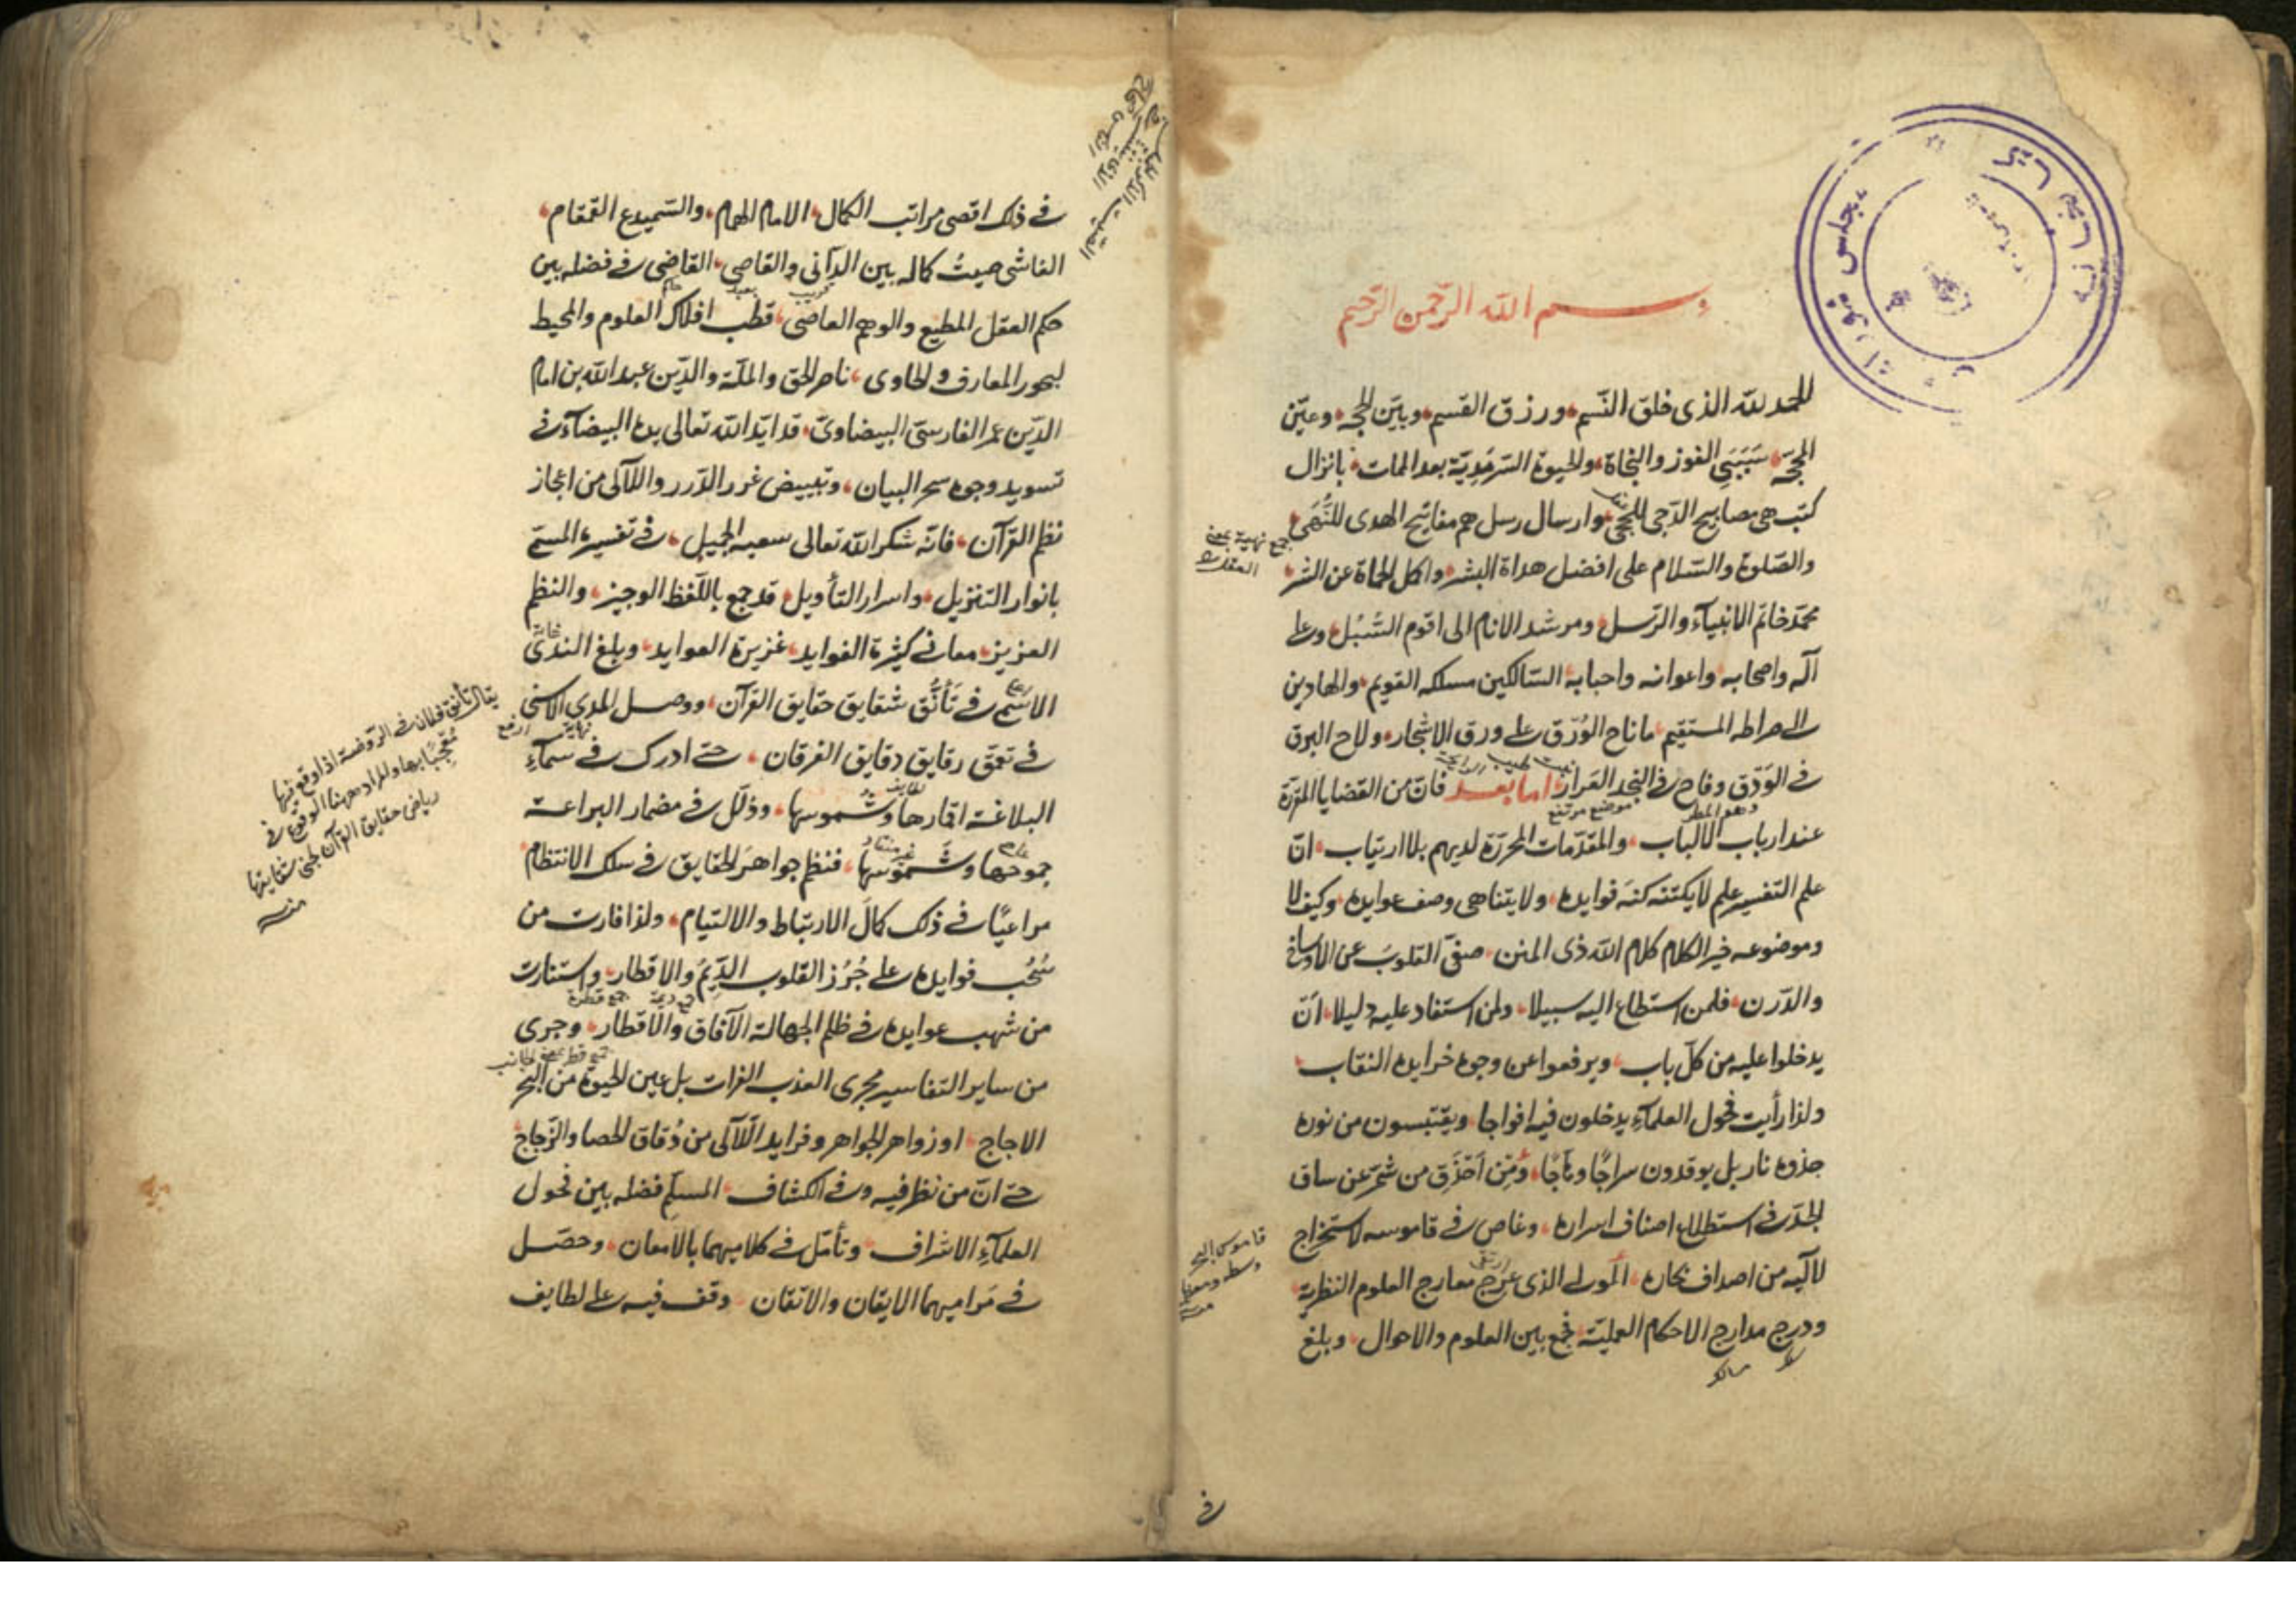 بسم الله الرّحمن الرّحيم
الحمد لله الذى خلق النّسم ورزق القسم وبيّن الحجه وعيّن
المحجّه سَبَبَيِ الفوز والنجاة والحيوة السّرمديّة بعد الممات بانزال
كتب هى مصابيح الدّجى للحجى وارسال رسل هم مفاتيح الهدى للنُّهَى
والصّلوة والسّلام على افضل هداة البشر واكمل الحماة عن الشر
محمّد خاتم الانبيآء والرّسل ومرشد الانام الى اقوم السُّبُل وعلى
آله واصحابه واعوانه واحبابه السّالكين مسلكه القويم والهادين
الى صراطه المستقيم ما ناح الوُرْق على ورق الاشجار ولاح البرق
فى الوَدْق وفاح فى النجد العَرار اما بعد فانّ من القضايا المقرّرة
عند ارباب الالباب والمقدّمات المحرّرة لديهم بلا ارتياب انّ
علم التفسير علم لا يكتنه كنهَ فوايده ولا يتناهى وصف عوايده وكيف لا
وموضوعه خير الكلام كلام الله ذى المنن صفىّ القلوبَ عن الاوساخ
والدّرن فلمن استطاع اليه سبيلا ولمن استفاد عليه دليلا انّ
يدخلوا عليه من كلّ باب ويرفعوا عن وجوه خرايده النقاب
ولذا رأيت فحول العلمآءِ يدخلون فيه افواجا ويقتبسون من نوره
جذوة نار بل يوقدون سراجًا وهّاجًا ومِن اَحْذَقِ من شمّر عن ساق
الجدّ فى استطلاع اصناف اسراره وغاص فى قاموسه لاستخراج
لآليه من اصداف بحاره المولى الذى عرج معارج العلوم النظرية
ودرج مدارج الاحكام العمليّة فجمع بين العلوم والاحوال وبلغ
جمع نهية بمعنى
العقل
قاموس البحر
وسطه ومعظمه
منه
فى
فى ذلك اقصى مراتب الكمال الامام الهمام والسّميدع القمقام
الفاشى صيتُ كماله بين الدّانى والقاصى القاضى فى فضله بين
حكم العقل المطيع والوهم العاصى قطب افلاك العلوم والمحيط
لبحور المعارف والحاوى ناصر الحق والملّة والدّين عبد الله بن امام
الدّين عمر الفارسىّ البيضاوىّ قد ايّد الله تعالى يده البيضآء فى
تسويد وجوه سحر البيان وتبييض غرر الدّرر واللآلى من اعجاز
نظم القرآن فانّه شكر الله تعالى سعيه الجميل فى تفسيره المسمّى
بانوار التنزيل واسرار التأويل قد جمع باللّفظ الوجيز والنظم
العزيز معانى كثيرة الفوايد غزيرة العوايد وبلغ الندى
الاشمّ فى تَأَنُّقِ شقايق حقايق القرآن ووصل المدى الاسنى
فى تعمّق رقايق دقايق الفرقان حتى ادرك فى سمآءِ
البلاغة اقمارها وشموسها وذلّل فى مضمار البراعة
جموحها وشَموسها فنظم جواهر الحقايق فى سلك الانتظام
مراعيًا فى ذلك كمالَ الارتباط والالتيام ولذا فارت من
سُحُب فوايده على جُرُز القلوب الدِّيَمُ والاقطار واستنارت
من شهب عوايده فى ظلم الجهالة الآفاق والاقطار وجرى
من ساير التفاسير مجرى العذب الفرات بل عين الحيوة من البحر
الاجاج او زواهر الجواهر وفرايد اللّآلى من دُقاق الحصا والزّجاج
حتى انّ من نظر فيه وفى الكشاف المسلَّم فضله بين فحول
العلمآءِ الاشراف وتأمّل فى كلاميهما بالامعان وحصّل
فى مَراميهما الايقان والاتقان وقف فيه على لطايف
يقال تأنّق فلان فى الرّوضة اذا وقع فيها
مُعْجِبًا بها والمراد ههنا الوقوع فى
رياض حقايق القرآن لجنى شقايقها
منه